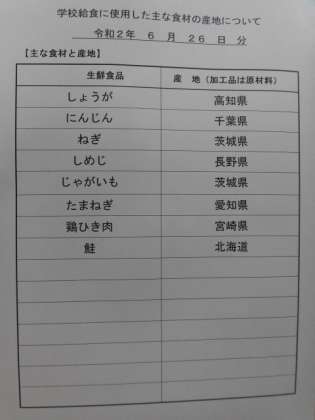 学校給食に使用した主な食材の産地について
令和2年 6 月 26 日 分
【主な食材と産地】
生鮮食品 産 地（加工品は原材料）
しょうが 高知県
にんじん 千葉県
ねぎ 茨城県
しめじ 長野県
じゃがいも 茨城県
たまねぎ 愛知県
鶏ひき肉 宮崎県
鮭 北海道